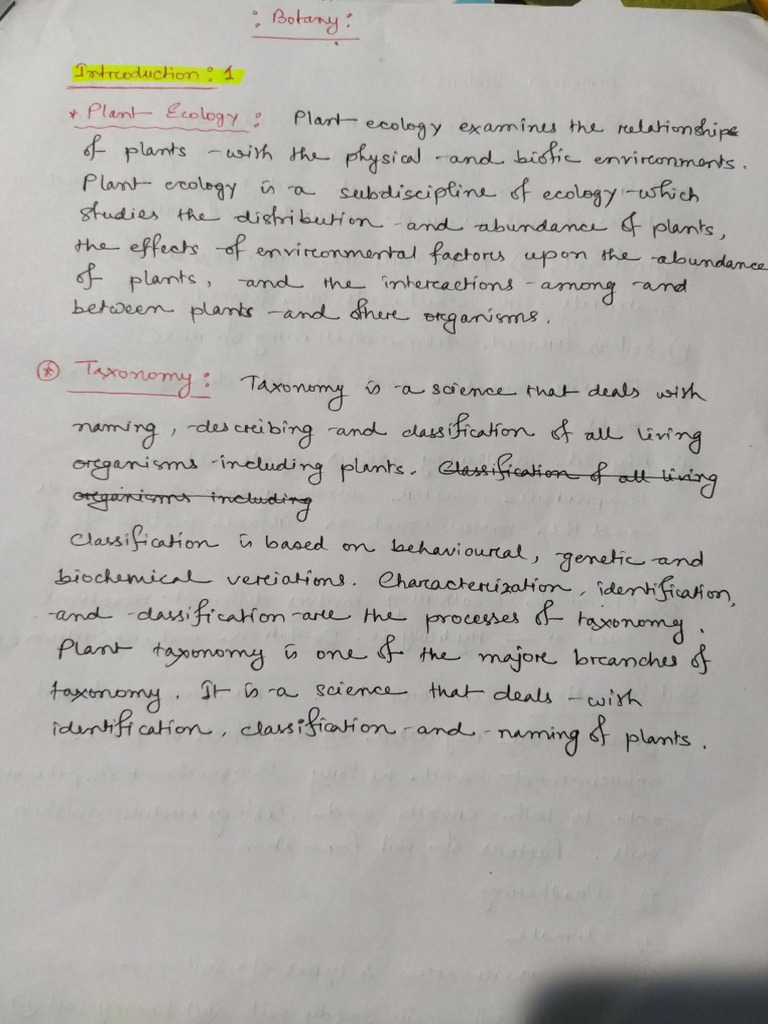 : Botany :
Introduction : 1
* Plant Ecology : Plant ecology examines the relationships
of plants with the physical and biotic environments.
Plant ecology is a subdiscipline of ecology which
studies the distribution and abundance of plants,
the effects of environmental factors upon the abundance
of plants, and the interactions among and
between plants and other organisms.
* Taxonomy : Taxonomy is a science that deals with
naming, describing and classification of all living
organisms including plants. ~~Classification of all living~~
~~organisms including~~
Classification is based on behavioural, genetic and
biochemical veriations. Characterization, identification,
and classification are the processes of taxonomy.
Plant taxonomy is one of the majore branches of
taxonomy. It is a science that deals with
identification, classification and naming of plants.